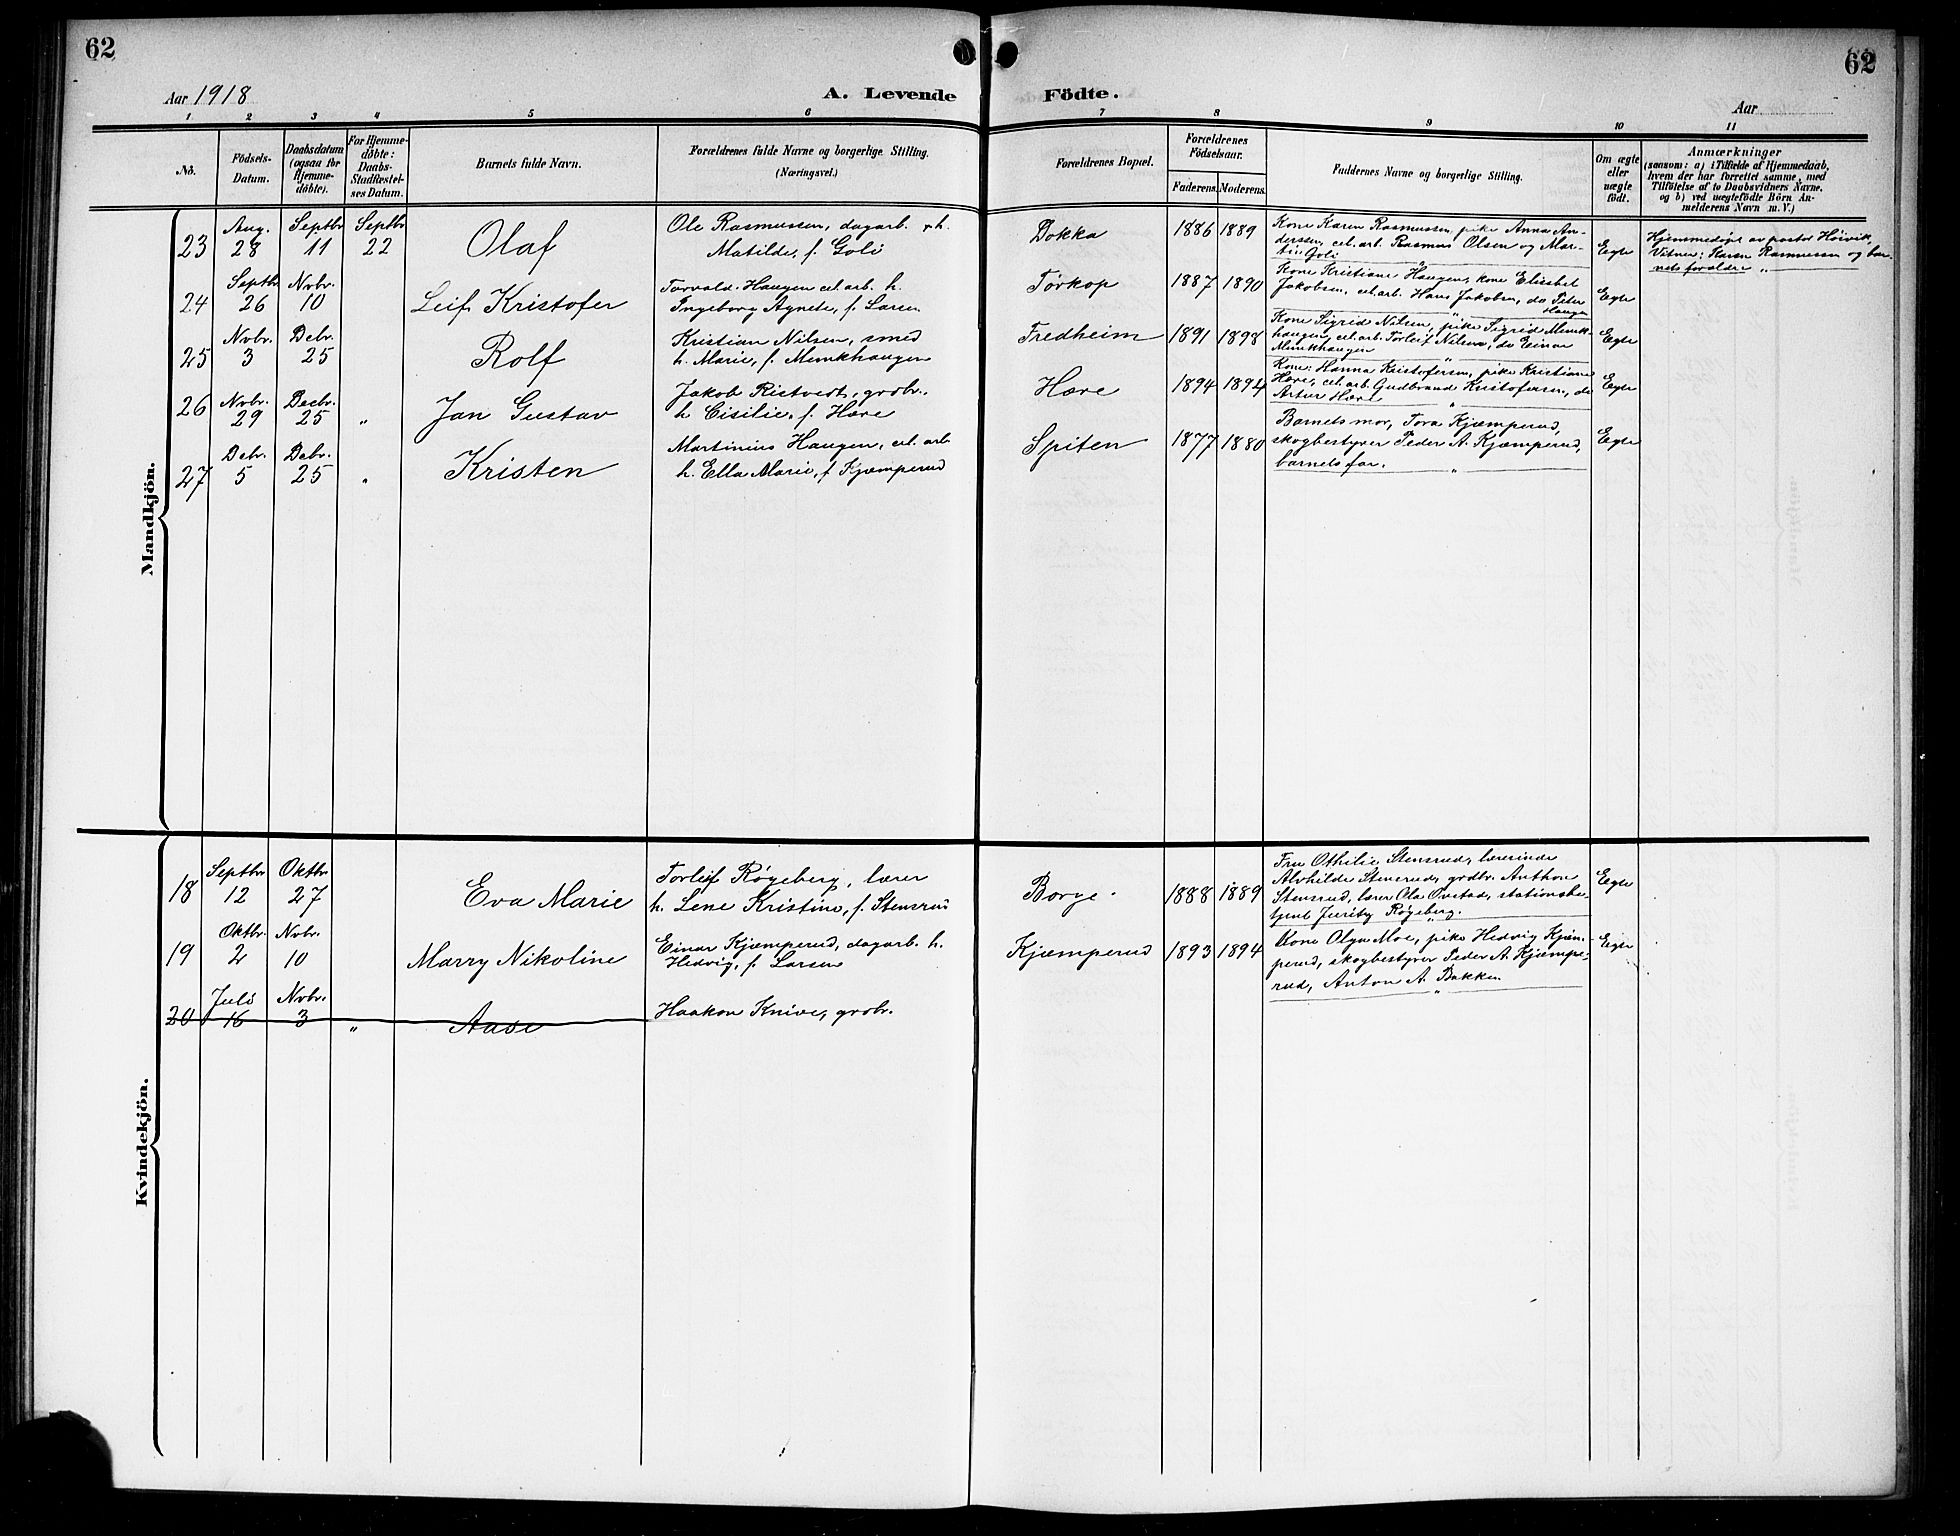 62
62
Aar 1918
A. Levende
Födte.
Aar
1 2 3 4 5 6 7 8 9 10 11
No.
Födsels-
Datum.
Daabsdatum
(ogsaa for
Hjemme-
døbte).
For Hjemme-
døbte:
Daabs-
Stadfestel-
ses Datum.
Barnets fulde Navn.
Forældrenes fulde Navne og borgerlige Stilling.
(Næringsvei.)
Forældrenes Bopæl.
Forældrenes
Födselsaar.
Faderens. Moderens.
Faddernes Navne og borgerlige Stilling.
Om ægte
eller
uægte
født.
Anmærkninger
(saasom: a) i Tilfælde af Hjemmedaab,
hvem der har forrettet samme, med
Tilföielse af to Daabsvidners Navne,
og b) ved uægtefödte Börn An-
melderens Navn m. V.)
Mandkjön.
23
Aug.
28
Septbr
11
Septbr
22
Olaf
Ole Rasmussen, dagarb. & h.
Matilde, f. Goli
Dokka
1886 1889
Kone Karen Rasmussen, pike Anna An-
derssen, cel. arb. Rasmus Olsen og Mar-
tin Goli
Egte
Hjemmedøpt av pastor Høivik,
Vitner: Karen Rasmussen og bar-
nets forældre "
24
Septbr
26
Nvbr.
10
Leif Kristofer
Torvald Haugen cel. arb. h.
Ingeborg Agnete, f. Laren
Torkop
1887 1890
Kone Kristiane Haugen, kone Elisabet
Jakobsen, cel. arb. Hans Jakobsen, do Peter
Haugen
Egte
25
Nvbr.
3
Debr.
25
Rolf
Kristian Nilsen, smed
h. Marie, f. Munkhaugen
Fredheim
1891 1898
Kone Sigrid Nilsen, pike Sigrid Munk-
haugen, cel. arb. Torleif Nilsen, do Einar
Munkhaugen
Egte
26
Nvbr.
29
Decbr.
25
"
Jan Gustav
Jakob Ristvedt, grdbr.
h. Cisilie, f. Hære
Hære
1894 1894
Kone: Hanna Kristofersen, pike Kristiane
Hære, cel. arb. Gudbrand Kristofersen, do
Artur Hære "
Egte
27
Debr.
5
Debr.
25
"
Kristen
Martinius Haugen, cel. arb
h. Ella Marie, f. Kjæmperud
Spiten
1877 1880
Barnets mor, Tora Kjæmperud,
skogbestyrer Peder A. Kjæmperud,
barnets far. "
Egte
Kvindekjön.
18
Septbr
12
Oktbr
27
Eva Marie
Torleif Røgeberg, lærer
h. Lene Kristine, f. Stensrud
Borge.
1888 1889
Fru Othilie Stensrud, lærerinde
Alvhilde Stensrud, grdbr. Anthon
Stensrud, lærer Ola Ovstad, stationsbe-
tjent Røgeberg.
Egte
19
Oktbr.
2
Nvbr.
10
Marry Nikoline
Einar Kjæmperud, dagarb. h.
Hedvig, f. Larsen
Kjæmperud
1893 1894
Kone Olga Moe, pike Hedvig Kjæm-
perud, skogbestyrer Peder A. Kjæmpe-
rud, Anton A. Bakken "
Egte
20
Juli
16
Nvbr.
3
"
Aase
Haakon Knive, grdbr.